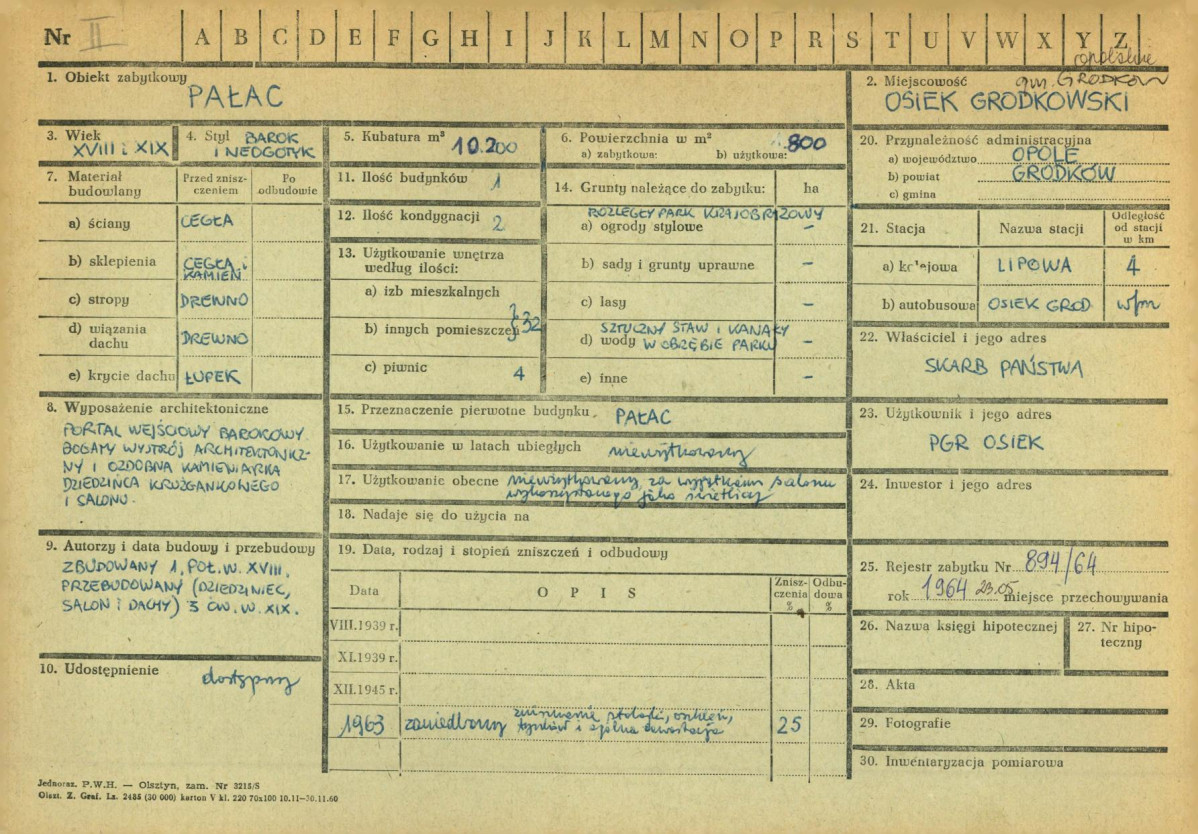 Nr II A B C D E F G H I J K L M N O P R S T U V W X Y Z
opolskie
1. Obiekt zabytkowy
PAŁAC
2. Miejscowość gm. GRODKÓW
OSIEK GRODKOWSKI
3. Wiek
XVIII i XIX
4. Styl BAROK
I NEOGOTYK
5. Kubatura m³ 10.200
6. Powierzchnia w m²
a) zabytkowa: b) użytkowa: 800
20. Przynależność administracyjna
a) województwo OPOLE
b) powiat GRODKÓW
c) gmina
7. Materiał
budowlany
Przed znisz-
czeniem
Po
odbudowie
a) ściany CEGŁA
b) sklepienia CEGŁA i
KAMIEŃ
c) stropy DREWNO
d) wiązania
dachu DREWNO
e) krycie dachu ŁUPEK
11. Ilość budynków 1
12. Ilość kondygnacji 2
13. Użytkowanie wnętrza
według ilości:
a) izb mieszkalnych
b) innych pomieszczeń } 32
c) piwnic 4
14. Grunty należące do zabytku: ha
ROZLEGŁY PARK KRAJOBRAZOWY
a) ogrody stylowe –
b) sady i grunty uprawne –
c) lasy –
SZTUCZNY STAW I KANAŁY
d) wody W OBRĘBIE PARKU –
e) inne –
21. Stacja Nazwa stacji Odległość
od stacji
w km
a) kolejowa LIPOWA 4
b) autobusowa OSIEK GROD. w/m
22. Właściciel i jego adres
SKARB PAŃSTWA
8. Wyposażenie architektoniczne
PORTAL WEJŚCIOWY BAROKOWY.
BOGATY WYSTRÓJ ARCHITEKTONICZ-
NY I OZDOBNA KAMIENIARKA
DZIEDZIŃCA KRUŻGANKOWEGO
I SALONU.
15. Przeznaczenie pierwotne budynku PAŁAC
16. Użytkowanie w latach ubiegłych nieużytkowany
17. Użytkowanie obecne nieużytkowany, za wyjątkiem salonu
wykorzystanego jako świetlicę
18. Nadaje się do użycia na
23. Użytkownik i jego adres
PGR OSIEK
24. Inwestor i jego adres
9. Autorzy i data budowy i przebudowy
ZBUDOWANY 1. POŁ. W. XVIII,
PRZEBUDOWANY (DZIEDZINIEC,
SALON i DACHY) 3 ĆW. W. XIX.
10. Udostępnienie
dostępny
19. Data, rodzaj i stopień zniszczeń i odbudowy
Data OPIS Znisz-
czenia
% Odbu-
dowa
%
VIII.1939 r.
XI.1939 r.
XII.1945 r.
1963 zaniedbany zniszczenie stolarki, oszkleń,
tynków i ogólna dewastacja 25
25. Rejestr zabytku Nr 894/64
rok 1964 23.05 miejsce przechowywania
26. Nazwa księgi hipotecznej
27. Nr hipo-
teczny
28. Akta
29. Fotografie
30. Inwentaryzacja pomiarowa
Jednoraz. P.W.H. — Olsztyn, zam. Nr 3215/S
Olszt. Z. Graf. Lz. 2485 (30 000) karton V kl. 220 70x100 10.11—30.11.60